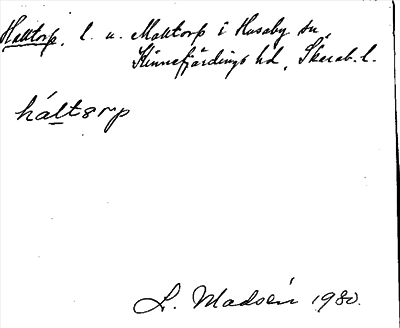 Halltorp, l. u. Molltorp i Husaby sn
Kinnefjärdings hd, Skarab. l.
háltsrp
L. Madsén 1980.